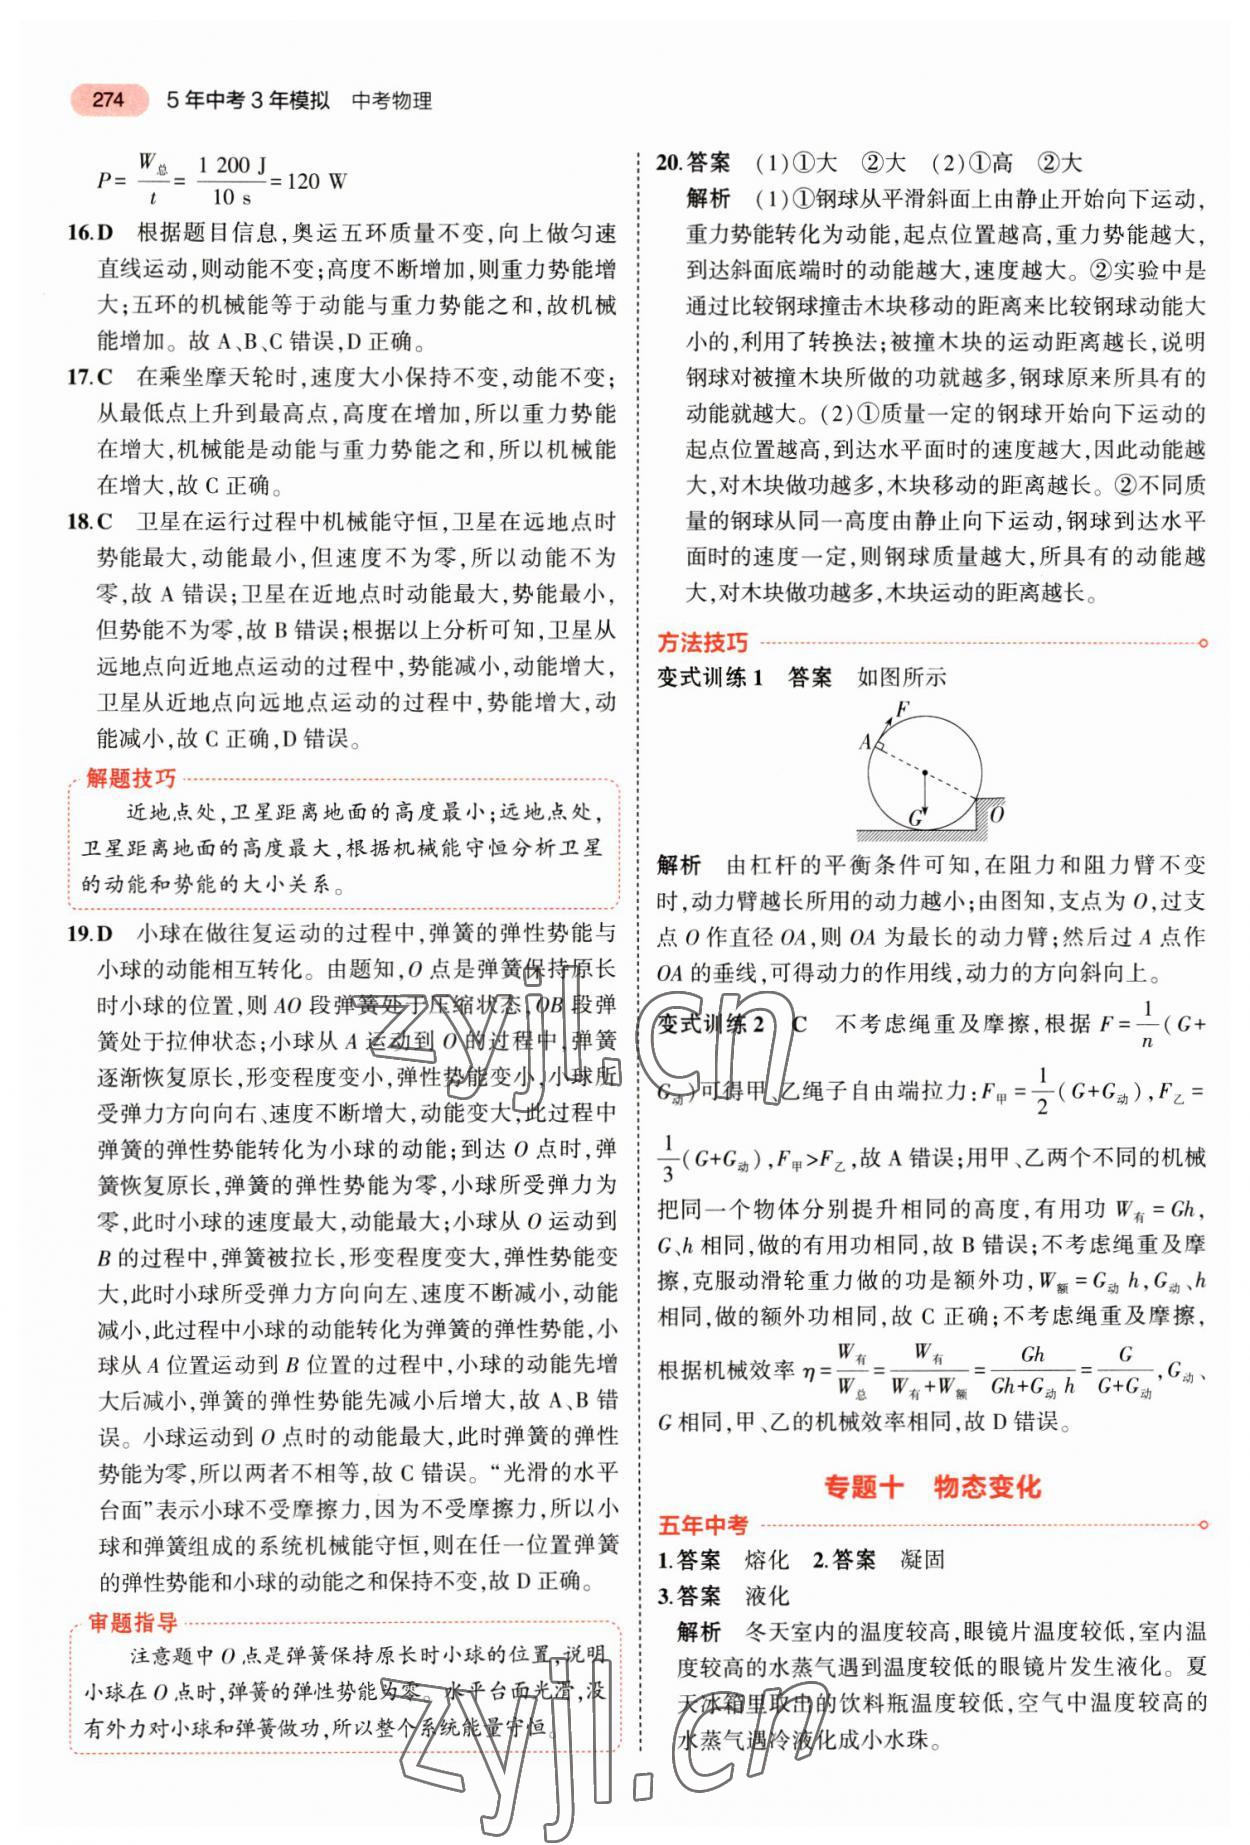 274 5年中考3年模拟 中考物理
P=W总/t=1 200 J/10 s=120 W
16.D 根据题目信息,奥运五环质量不变,向上做匀速
直线运动,则动能不变;高度不断增加,则重力势能增
大;五环的机械能等于动能与重力势能之和,故机械
能增加。故 A、B、C 错误,D 正确。
17.C 在乘坐摩天轮时,速度大小保持不变,动能不变;
从最低点上升到最高点,高度在增加,所以重力势能
在增大,机械能是动能与重力势能之和,所以机械能
在增大,故 C 正确。
18.C 卫星在运行过程中机械能守恒,卫星在远地点时
势能最大,动能最小,但速度不为零,所以动能不为
零,故 A 错误;卫星在近地点时动能最大,势能最小,
但势能不为零,故 B 错误;根据以上分析可知,卫星从
远地点向近地点运动的过程中,势能减小,动能增大,
卫星从近地点向远地点运动的过程中,势能增大,动
能减小,故 C 正确,D 错误。
解题技巧
近地点处,卫星距离地面的高度最小;远地点处,
卫星距离地面的高度最大,根据机械能守恒分析卫星
的动能和势能的大小关系。
19.D 小球在做往复运动的过程中,弹簧的弹性势能与
小球的动能相互转化。由题知,O 点是弹簧保持原长
时小球的位置,则 AO 段弹簧处于压缩状态,OB 段弹
簧处于拉伸状态;小球从 A 运动到 O 的过程中,弹簧
逐渐恢复原长,形变程度变小,弹性势能变小,小球所
受弹力方向向右、速度不断增大,动能变大,此过程中
弹簧的弹性势能转化为小球的动能;到达 O 点时,弹
簧恢复原长,弹簧的弹性势能为零,小球所受弹力为
零,此时小球的速度最大,动能最大;小球从 O 运动到
B 的过程中,弹簧被拉长,形变程度变大,弹性势能变
大,此时小球所受弹力方向向左、速度不断减小,动能
减小,此过程中小球的动能转化为弹簧的弹性势能,小
球从 A 位置运动到 B 位置的过程中,小球的动能先增
大后减小,弹簧的弹性势能先减小后增大,故 A、B 错
误。小球运动到 O 点时的动能最大,此时弹簧的弹性
势能为零,所以两者不相等,故 C 错误。“光滑的水平
台面”表示小球不受摩擦力,因为不受摩擦力,所以小
球和弹簧组成的系统机械能守恒,则在任一位置弹簧
的弹性势能和小球的动能之和保持不变,故 D 正确。
审题指导
注意题中 O 点是弹簧保持原长时小球的位置,说明
小球在 O 点时,弹簧的弹性势能为零。水平台面光滑,没
有外力对小球和弹簧做功,所以整个系统能量守恒。
20.答案 (1)①大 ②大 (2)①高 ②大
解析 (1)①钢球从平滑斜面上由静止开始向下运动,
重力势能转化为动能,起点位置越高,重力势能越大,
到达斜面底端时的动能越大,速度越大。②实验中是
通过比较钢球撞击木块移动的距离来比较钢球动能大
小的,利用了转换法;被撞木块的运动距离越长,说明
钢球对被撞木块所做的功就越多,钢球原来所具有的
动能就越大。(2)①质量一定的钢球开始向下运动的
起点位置越高,到达水平面时的速度越大,因此动能越
大,对木块做功越多,木块移动的距离越长。②不同质
量的钢球从同一高度由静止向下运动,钢球到达水平
面时的速度一定,则钢球质量越大,所具有的动能越
大,对木块做功越多,木块运动的距离越长。
方法技巧
变式训练1 答案 如图所示
F
A
G
O
解析 由杠杆的平衡条件可知,在阻力和阻力臂不变
时,动力臂越长所用的动力越小;由图知,支点为 O,过支
点 O 作直径 OA,则 OA 为最长的动力臂;然后过 A 点作
OA 的垂线,可得动力的作用线,动力的方向斜向上。
变式训练2 C 不考虑绳重及摩擦,根据 F=1/n(G+
G动)可得甲、乙绳子自由端拉力:F甲=1/2(G+G动),F乙=
1/3(G+G动),F甲>F乙,故 A 错误;用甲、乙两个不同的机械
把同一个物体分别提升相同的高度,有用功 W有=Gh,
G、h 相同,做的有用功相同,故 B 错误;不考虑绳重及摩
擦,克服动滑轮重力做的功是额外功,W额=G动 h,G动、h
相同,做的额外功相同,故 C 正确;不考虑绳重及摩擦,
根据机械效率 η=W有/W总=W有/(W有+W额)=Gh/(Gh+G动 h)=G/(G+G动),G动、
G 相同,甲、乙的机械效率相同,故 D 错误。
专题十 物态变化
五年中考
1.答案 熔化 2.答案 凝固
3.答案 液化
解析 冬天室内的温度较高,眼镜片温度较低,室内温
度较高的水蒸气遇到温度较低的眼镜片发生液化。夏
天冰箱里取出的饮料瓶温度较低,空气中温度较高的
水蒸气遇冷液化成小水珠。
zyjl.cn
zyjl.cn